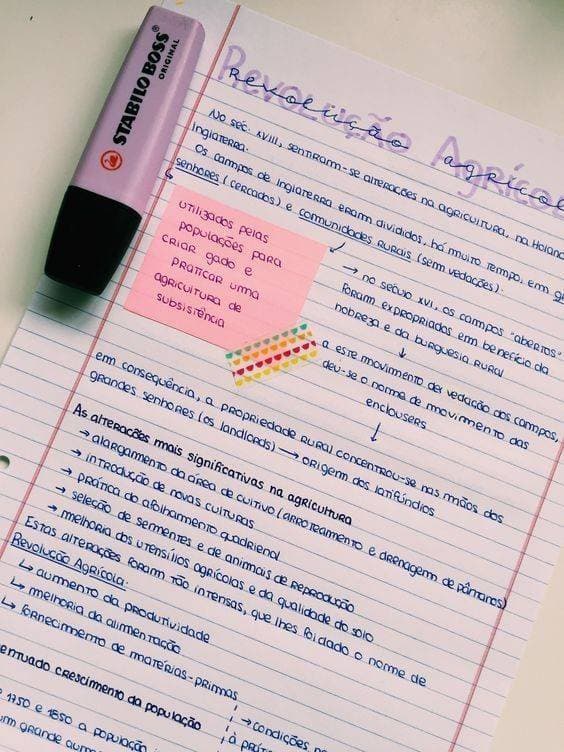 STABILO BOSS
ORIGINAL
Revolução Agríco
Revolução agríco
No séc. XVIII, sentiram-se alterações na agricultura, na Holan
Inglaterra.
Os campos de Inglaterra eram divididos, há muito tempo, em
senhores (cercados) e comunidades rurais (sem vedações).
utilizados pelas
populações para
criar gado e
praticar uma
agricultura de
subsistência
→ no século XVI, os campos "abertos"
foram expropriados em benefício da
nobreza e da burguesia rural
↓
a este movimento de vedação dos campos,
deu-se o nome de movimento das
enclousers
↓
em consequência, a propriedade rural concentrou-se nas mãos dos
grandes senhores (os landlords) → origem dos latifúndios
As alterações mais significativas na agricultura
→ alargamento da área de cultivo (arroteamento e drenagem de pântanos)
→ introdução de novas culturas
→ prática do afolhamento quadrienal
→ seleção de sementes e de animais de reprodução
→ melhoria dos utensílios agrícolas e da qualidade do solo
Estas alterações foram tão intensas, que lhes foi dado o nome de
Revolução Agrícola:
↳ aumento da produtividade
↳ melhoria da alimentação
↳ fornecimento de matérias-primas
entuado crescimento da população
1750 e 1850 a população
um grande aum
→ condições
à